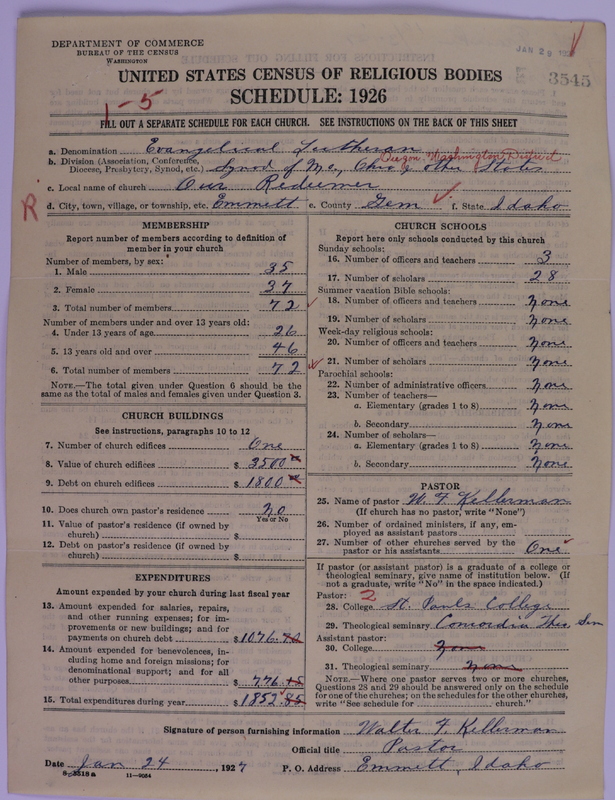 DEPARTMENT OF COMMERCE
BUREAU OF THE CENSUS
WASHINGTON
JAN 29
3545
UNITED STATES CENSUS OF RELIGIOUS BODIES
SCHEDULE: 1926
1-5
FILL OUT A SEPARATE SCHEDULE FOR EACH CHURCH. SEE INSTRUCTIONS ON THE BACK OF THIS SHEET
a. Denomination Evangelical Lutheran
b. Division (Association, Conference, Oregon Washington District
Diocese, Presbytery, Synod, etc.) Synod of Mo., Ohio & other States
c. Local name of church Our Redeemer
R d. City, town, village, or township, etc. Emmett e. County Gem f. State Idaho
MEMBERSHIP
Report number of members according to definition of
member in your church
Number of members, by sex:
1. Male 35
2. Female 37
3. Total number of members 72
Number of members under and over 13 years old:
4. Under 13 years of age 26
5. 13 years old and over 46
6. Total number of members 72
NOTE.—The total given under Question 6 should be the
same as the total of males and females given under Question 3.
CHURCH BUILDINGS
See instructions, paragraphs 10 to 12
7. Number of church edifices One
8. Value of church edifices $ 3500
9. Debt on church edifices $ 1800
10. Does church own pastor's residence no
Yes or No
11. Value of pastor's residence (if owned by
church) $
12. Debt on pastor's residence (if owned by
church) $
EXPENDITURES
Amount expended by your church during last fiscal year
13. Amount expended for salaries, repairs,
and other running expenses; for im-
provements or new buildings; and for
payments on church debt $ 1076
14. Amount expended for benevolences, in-
cluding home and foreign missions; for
denominational support; and for all
other purposes $ 776
15. Total expenditures during year $ 1852
CHURCH SCHOOLS
Report here only schools conducted by this church
Sunday schools:
16. Number of officers and teachers 3
17. Number of scholars 28
Summer vacation Bible schools:
18. Number of officers and teachers none
19. Number of scholars none
Week-day religious schools:
20. Number of officers and teachers none
21. Number of scholars none
Parochial schools:
22. Number of administrative officers none
23. Number of teachers—
a. Elementary (grades 1 to 8) none
b. Secondary none
24. Number of scholars—
a. Elementary (grades 1 to 8) none
b. Secondary none
PASTOR
25. Name of pastor W. F. Kellerman
(If church has no pastor, write "None")
26. Number of ordained ministers, if any, em-
ployed as assistant pastors
27. Number of other churches served by the
pastor or his assistants One
If pastor (or assistant pastor) is a graduate of a college or
theological seminary, give name of institution below. (If
not a graduate, write "No" in the space indicated.)
Pastor: 2
28. College St. Pauls College
29. Theological seminary Concordia Theo Sem
Assistant pastor:
30. College none
31. Theological seminary none
NOTE.—Where one pastor serves two or more churches,
Questions 28 and 29 should be answered only on the schedule
for one of the churches; on the schedules for the other churches,
write "See schedule for church."
Signature of person furnishing information Walter F. Kellerman
Official title Pastor
Date Jan 24, 1927 P. O. Address Emmett, Idaho
8-3518a 11-9054